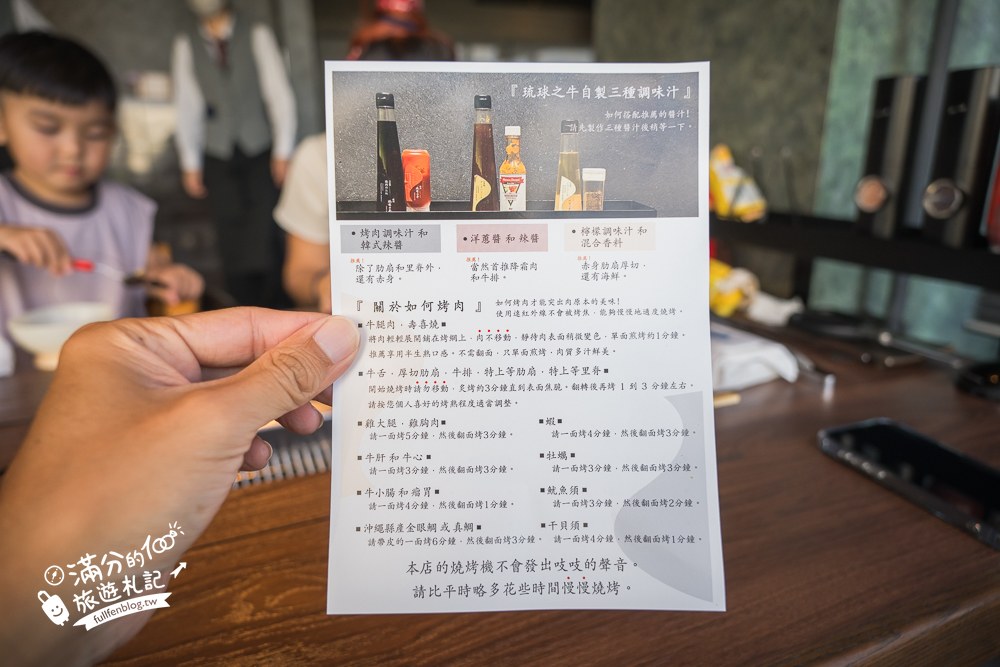 『 琉球之牛自製三種調味汁 』
如何搭配推薦的醬汁!
請先製作三種醬汁後稍等一下。
• 烤肉調味汁 和
韓式辣醬
• 洋蔥醬 和 辣醬
• 檸檬調味汁 和
混合香料
推薦!
除了肋扇和里脊外,
還有赤身。
推薦!
當然首推降霜肉
和牛排。
推薦!
赤身肋扇厚切,
還有海鮮。
『 關於如何烤肉 』
如何烤肉才能突出肉原本的美味!
使用遠紅外線不會被烤焦,能夠慢慢地適度燒烤。
■牛腿肉,壽喜燒■
將肉輕輕展開鋪在烤網上,肉不移動,靜待肉表面稍微變色,單面煎烤約1分鐘。
推薦享用半生熟口感,不需翻面,只單面煎烤,肉質多汁鮮美。
■牛舌,厚切肋扇,牛排,特上等肋扇,特上等里脊■
開始燒烤時請勿移動,炙烤約3分鐘直到表面焦脆。翻轉後再烤 1 到 3 分鐘左右。
請按您個人喜好的烤熟程度適當調整。
■雞大腿,雞胸肉■
請一面烤5分鐘,然後翻面烤3分鐘。
■牛肝 和 牛心■
請一面烤3分鐘,然後翻面烤3分鐘。
■牛小腸 和 瘤胃■
請一面烤4分鐘,然後翻面烤1分鐘。
■沖繩縣產金眼鯛 或 真鯛■
請帶皮的一面烤6分鐘,然後翻面烤3分鐘。
■蝦■
請一面烤4分鐘,然後翻面烤3分鐘。
■牡蠣■
請一面烤3分鐘,然後翻面烤3分鐘。
■魷魚須■
請一面烤3分鐘,然後翻面烤2分鐘。
■干貝須■
請一面烤4分鐘,然後翻面烤1分鐘。
本店的燒烤機不會發出吱吱的聲音。
請比平時略多花些時間慢慢燒烤。
滿分的100
旅遊札記
fullfenblog.tw